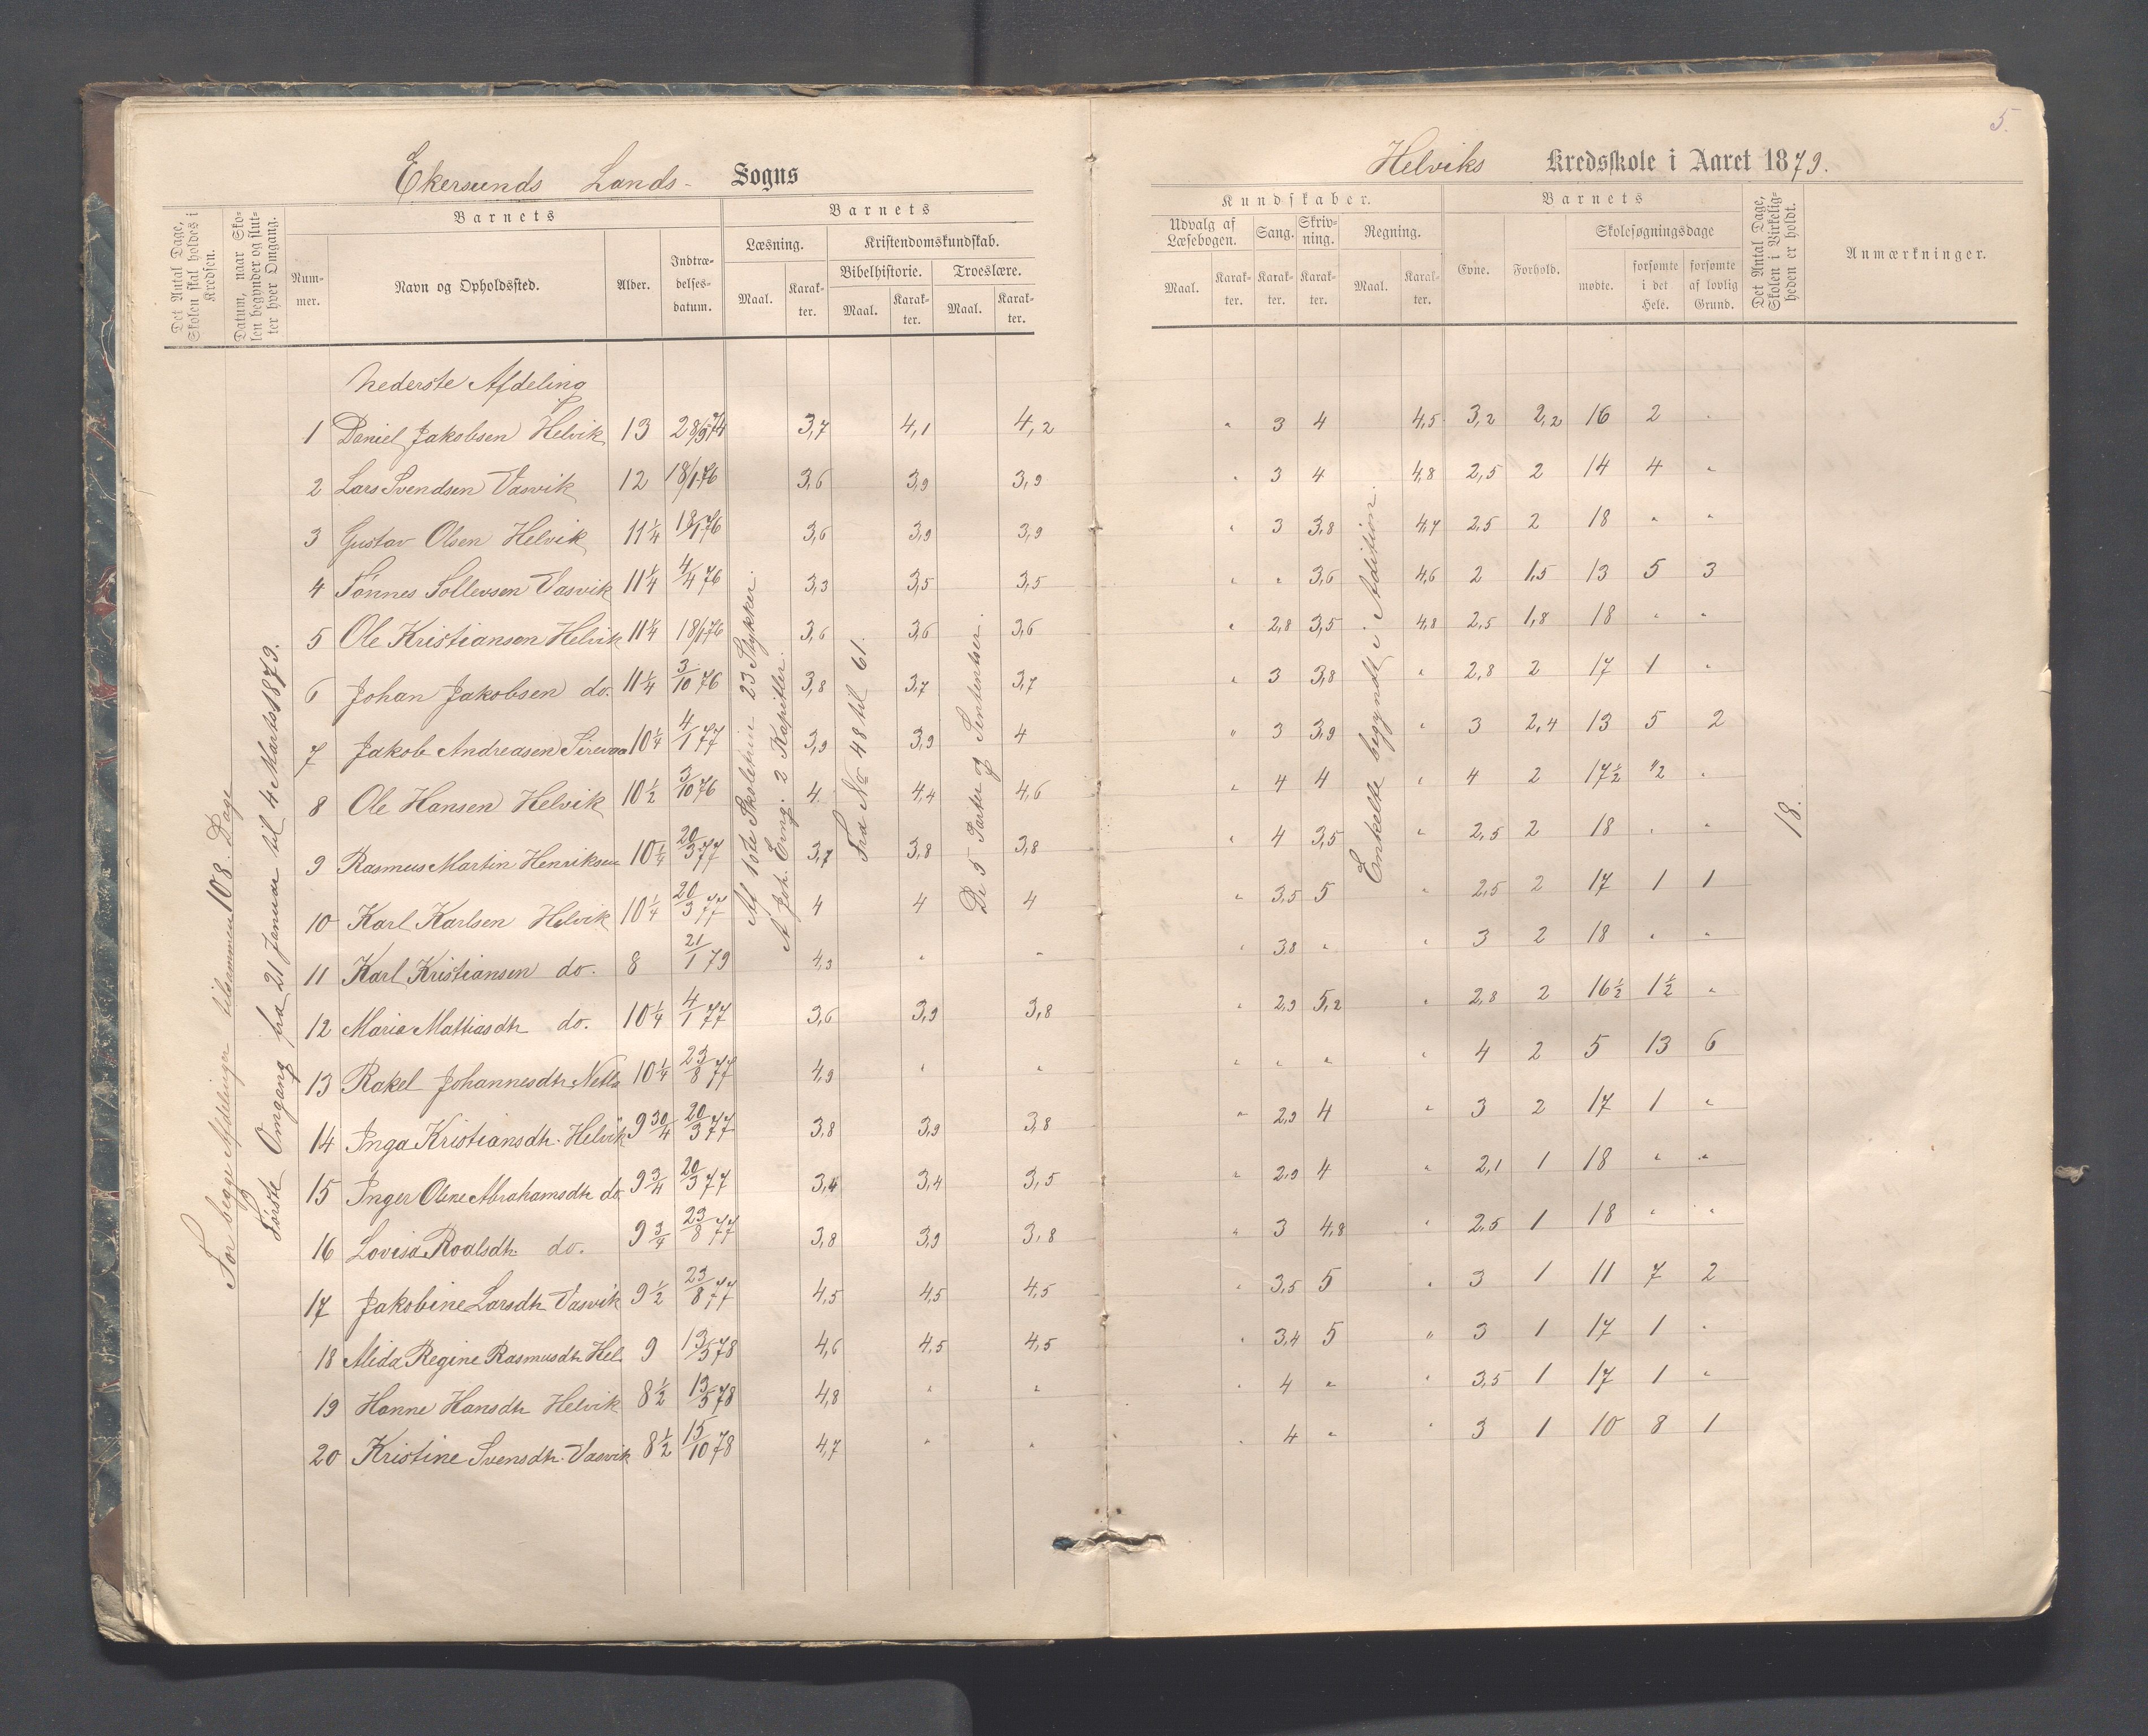 5.
Ekersunds Lands- Sogns
Helviks Kredsskole i Aaret 1879.
Det Antal Dage, Skolen skal holdes i Kredsen.
Datum, naar Skolen begynder og slutter hver Omgang.
Barnets
Nummer.
Navn og Opholdssted.
Alder.
Indtrædelsesdatum.
Barnets
Læsning.
Maal.
Karakter.
Kristendomskundskab.
Bibelhistorie.
Maal.
Karakter.
Troeslære.
Maal.
Karakter.
Kundskaber.
Udvalg af Læsebogen.
Maal.
Karakter.
Sang.
Karakter.
Skrivning.
Karakter.
Regning.
Maal.
Karakter.
Barnets
Evne.
Forhold.
Skolesøgningsdage
mødte.
forsømte i det Hele.
forsømte af lovlig Grund.
Det Antal Dage, Skolen i Virkeligheden er holdt.
Anmærkninger.
For begge Afdelinger tilsammen 108 Dage
Første Omgang fra 21 Januar til 4 Marts 1879.
Nederste Afdeling
1 Daniel Jakobsen Helvik 13 28/9 74 3,7 4,1 4,2 " 3 4 4,5 3,2 2,2 16 2 "
2 Lars Svendsen Vasvik 12 18/1 76 3,6 3,9 3,9 " 3 4 4,8 2,5 2 14 4 "
3 Gustav Olsen Helvik 11 1/4 18/1 76 3,6 3,9 3,9 " 3 3,8 4,7 2,5 2 18 " "
4 Tønnes Tollevsen Vasvik 11 1/4 4/4 76 3,3 3,5 3,5 " " 3,6 4,6 2 1,5 13 5 3
5 Ole Kristiansen Helvik 11 1/4 18/1 76 3,6 3,6 3,6 " 2,8 3,5 4,8 2,5 1,8 18 " "
6 Johan Jakobsen do. 11 1/4 3/10 76 3,8 3,7 3,7 " 3 3,8 " 2,8 2 17 1 "
7 Jakob Andreasen Sirevaa 10 1/4 4/1 77 3,9 3,9 4 " 3 3,9 " 3 2,4 13 5 2
8 Ole Hansen Helvik 10 1/2 3/10 76 4 4,4 4,6 " 4 4 " 4 2 17 1/2 1/2 "
9 Rasmus Martin Henriksen 10 1/4 20/3 77 3,7 3,8 3,8 " 4 3,5 " 2,5 2 18 " "
10 Karl Karlsen Helvik 10 1/4 20/3 77 4 4 4 " 3,5 5 " 2,5 2 17 1 1
11 Karl Kristiansen do. 8 21/1 79 4,3 " " " 3,8 " " 3 2 18 " "
12 Maria Mattiasdtr do. 10 1/4 4/1 77 3,6 3,9 3,8 " 2,9 5,2 " 2,8 2 16 1/2 1 1/2 "
13 Rakel Johannesdtr Netl. 10 1/4 23/8 77 4,9 " " " " " " 4 2 5 13 6
14 Inga Kristiansdtr. Helvik 9 3/4 20/3 77 3,8 3,9 3,8 " 2,9 4 " 3 2 17 1 "
15 Inger Oline Abrahamsdtr do. 9 3/4 20/3 77 3,4 3,4 3,5 " 2,9 4 " 2,1 1 18 " "
16 Lovisa Roalsdtr. do. 9 3/4 23/8 77 3,8 3,9 3,8 " 3 4,8 " 2,5 1 18 " "
17 Jakobine Larsdtr Vasvik 9 1/2 23/8 77 4,5 4,5 4,5 " 3,5 5 " 3 1 11 7 2
18 Alida Regine Rasmusdtr Hel. 9 13/5 78 4,6 4,5 4,5 " 3,4 5 " 3 1 17 1 "
19 Hanne Hansdtr Helvik 8 1/2 13/5 78 4,8 " " " 4 " " 3,5 1 17 1 "
20 Kristine Svensdtr. Vasvik 8 1/2 15/10 78 4,7 " " " 4 " " 3 1 10 8 1
Af 1ste Skoletrin 23 Stykker.
A Joh. Evng. 2 Kapitler.
Fra No 48 til 61.
De 5 Parter og Sententser.
Enkelte begyndt i Addition.
18.